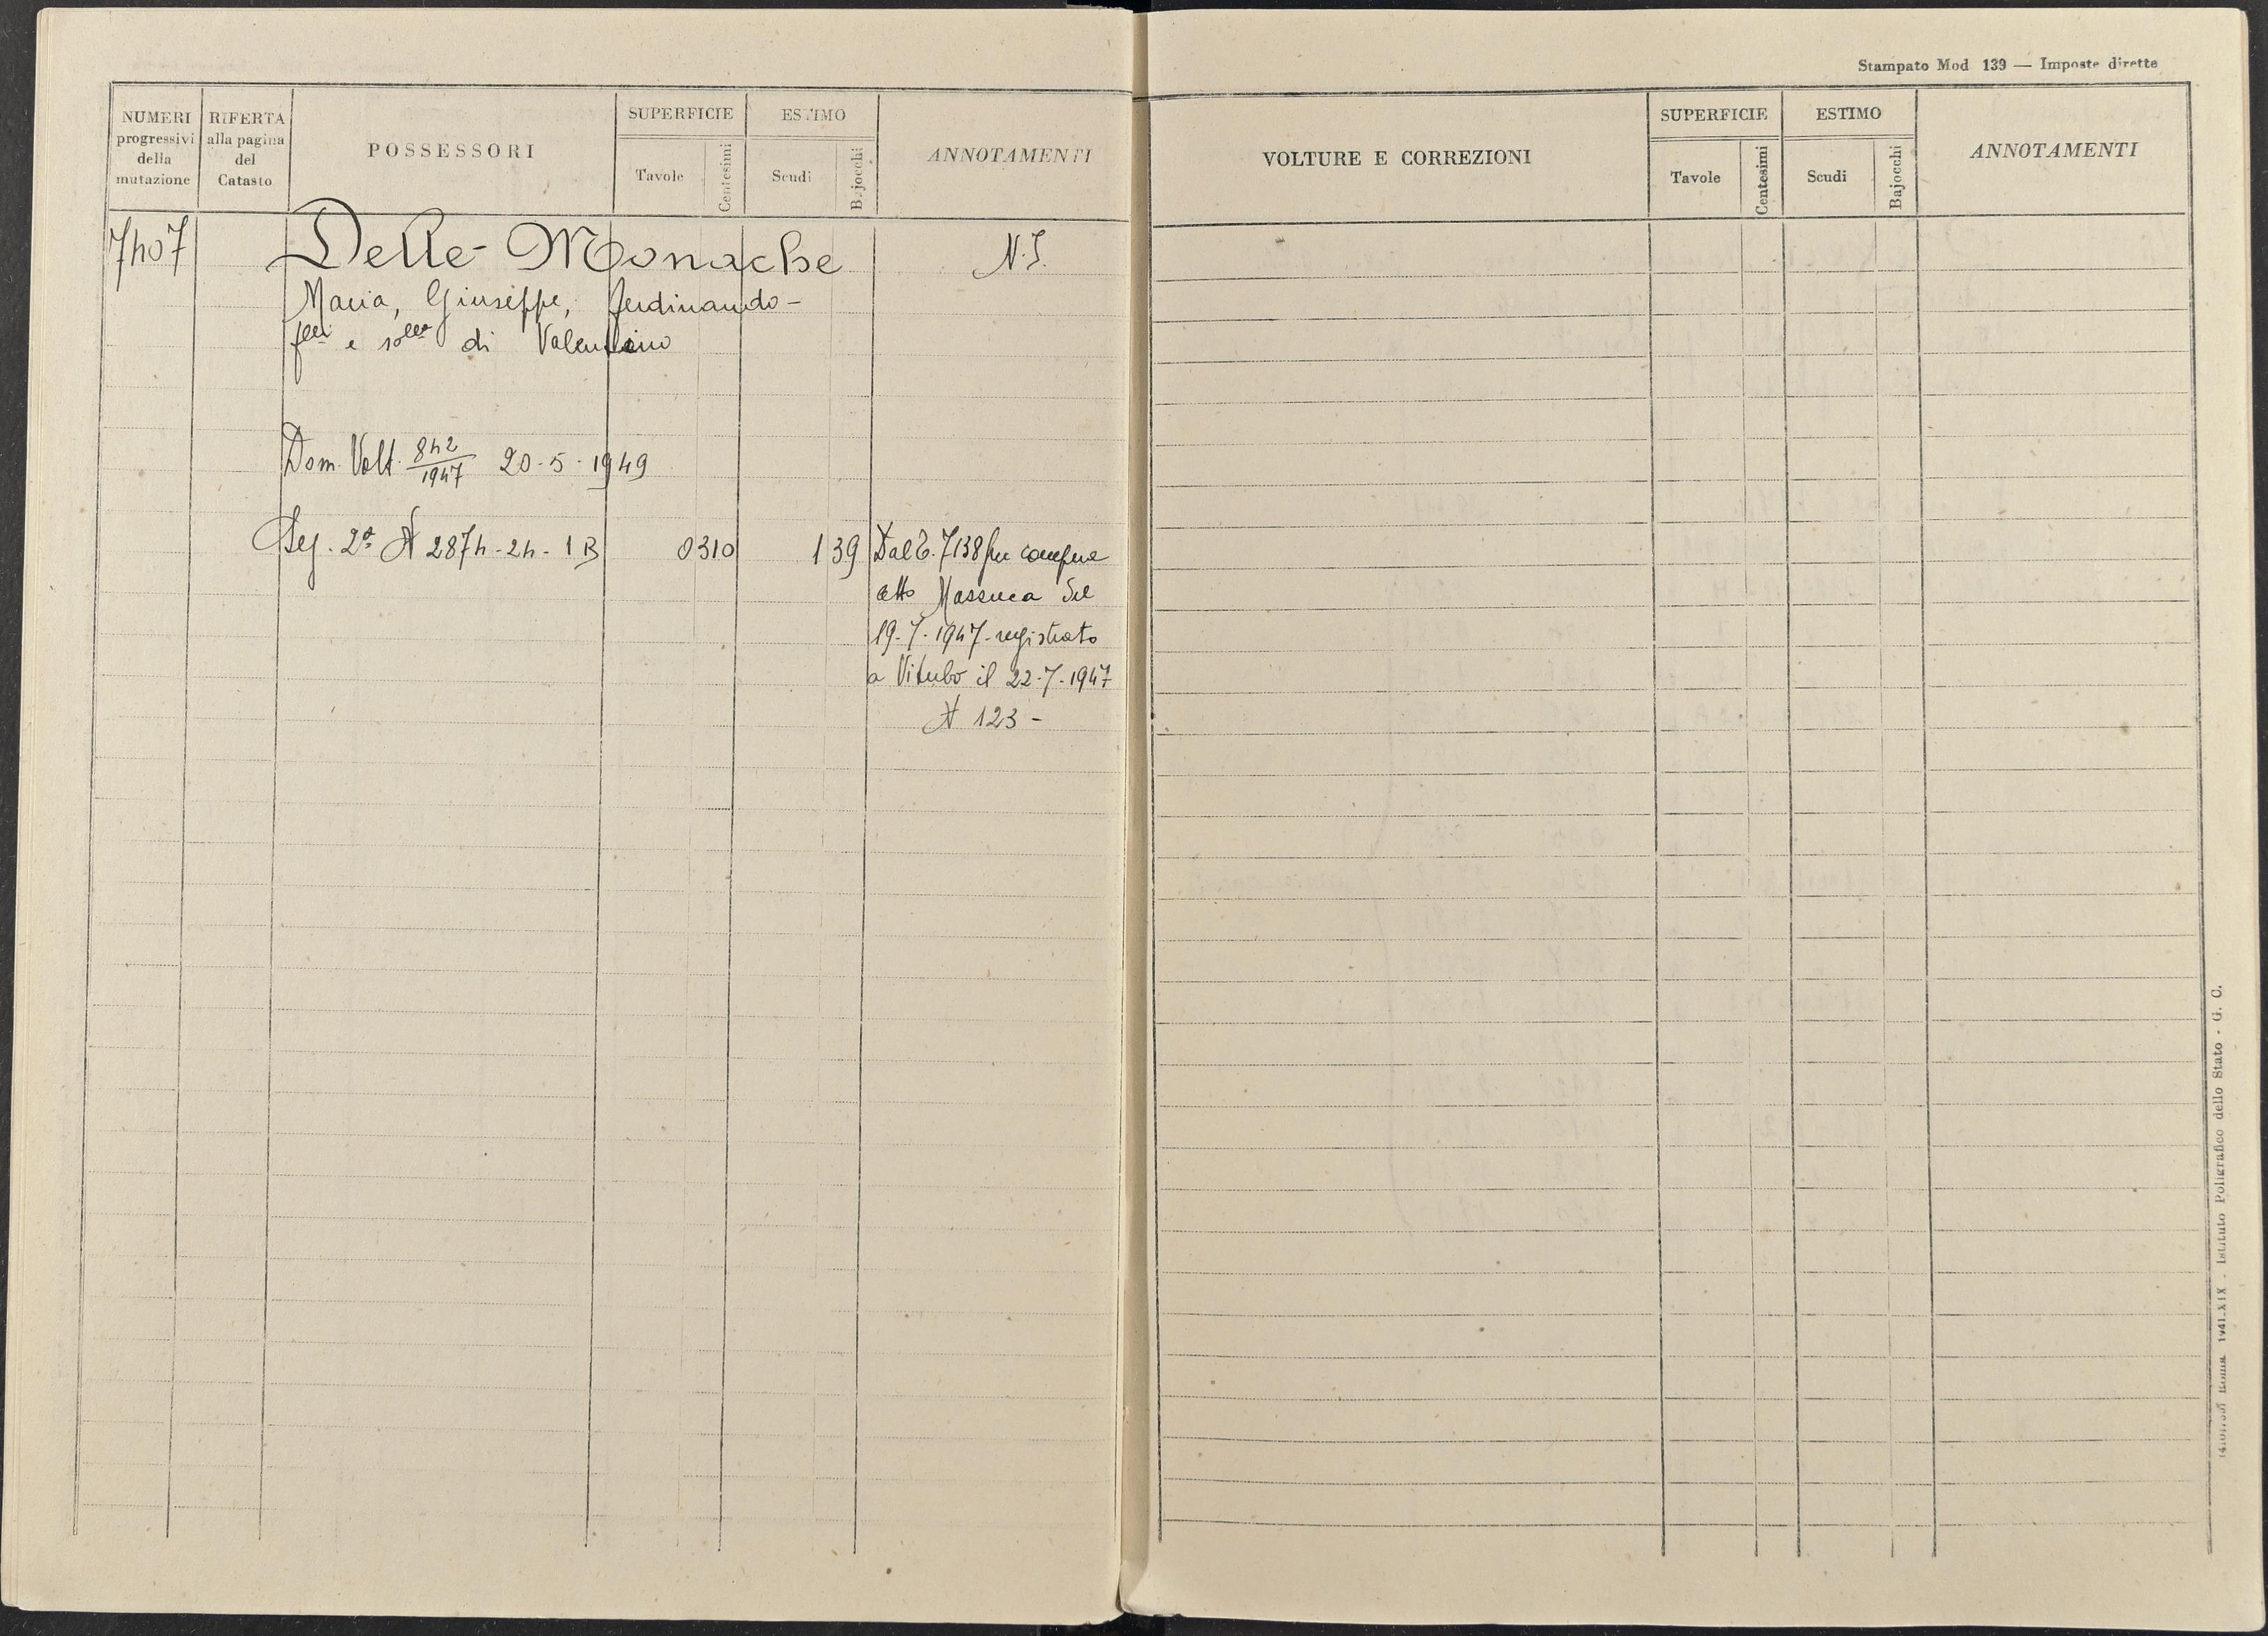 NUMERI progressivi della mutazione
RIFERTA alla pagina del Catasto
POSSESSORI
SUPERFICIE
Tavole
Centesimi
ESTIMO
Scudi
Bajocchi
ANNOTAMENTI
7407
Delle Monache
N.I.
Maria, Giuseppe, Ferdinando -
flli e solla di Valentino
Dom. Volt. 842/1947 20-5-1949
Sez. 2ª N 2874-24-1 B
0310
1 39
Dal C. 7138 per compra
atto Massuca del
19-7-1947-registrato
a Viterbo il 22-7-1947
N 123 -
Stampato Mod 139 — Imposte dirette
VOLTURE E CORREZIONI
SUPERFICIE
Tavole
Centesimi
ESTIMO
Scudi
Bajocchi
ANNOTAMENTI
Roma 1941-XIX - Istituto Poligrafico dello Stato - G. C.